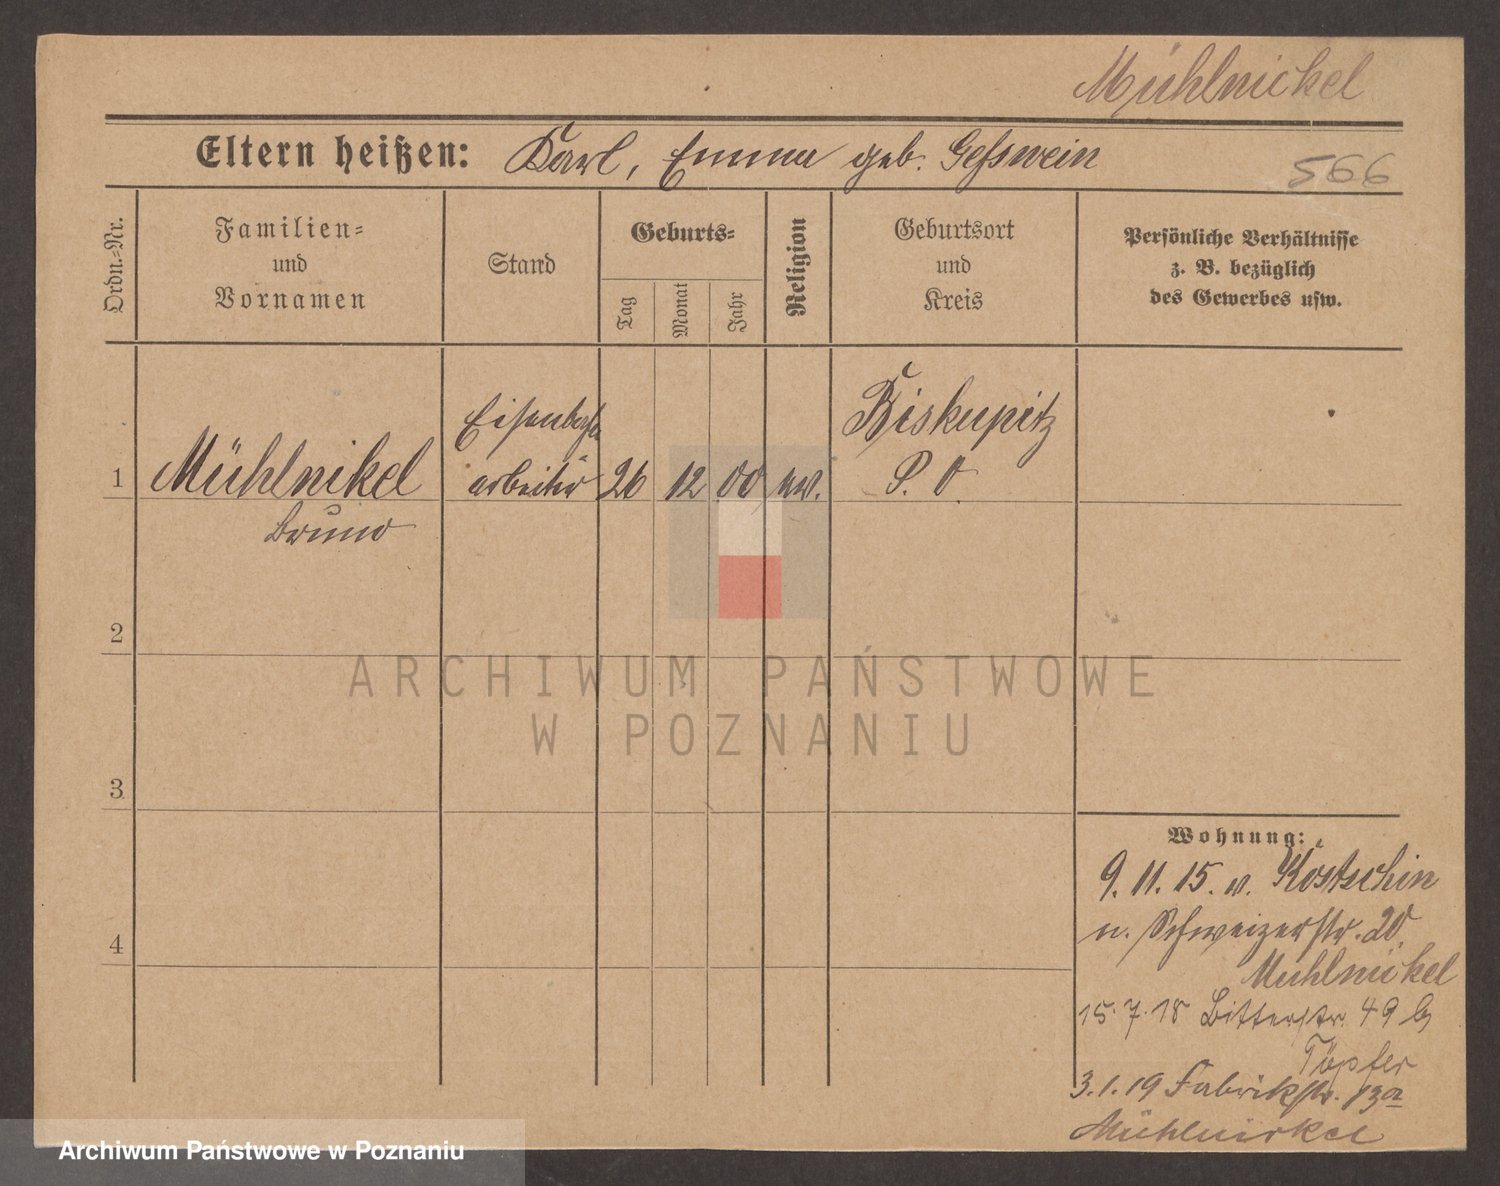 Mühlnickel
Eltern heißen: Karl, Emma geb. Gesswein
566
Ordn.-Nr.
Familien-
und
Vornamen
Stand
Geburts-
Tag
Monat
Jahr
Religion
Geburtsort
und
Kreis
Persönliche Verhältnisse
z. B. bezüglich
des Gewerbes usw.
1
Mühlnikel
Bruno
arbeiter
26
12
00
ev.
Biskupitz
P. O.
2
3
4
Wohnung:
9. 11. 15. v. Kostschin
n. Schweizerstr. 20
Mühlnickel
15. 7. 18 Bitterstr. 49 b
Töpfer
3. 1. 19 Fabrikstr. 13a
Mühlnickel
ARCHIWUM PAŃSTWOWE
W POZNANIU
Archiwum Państwowe w Poznaniu